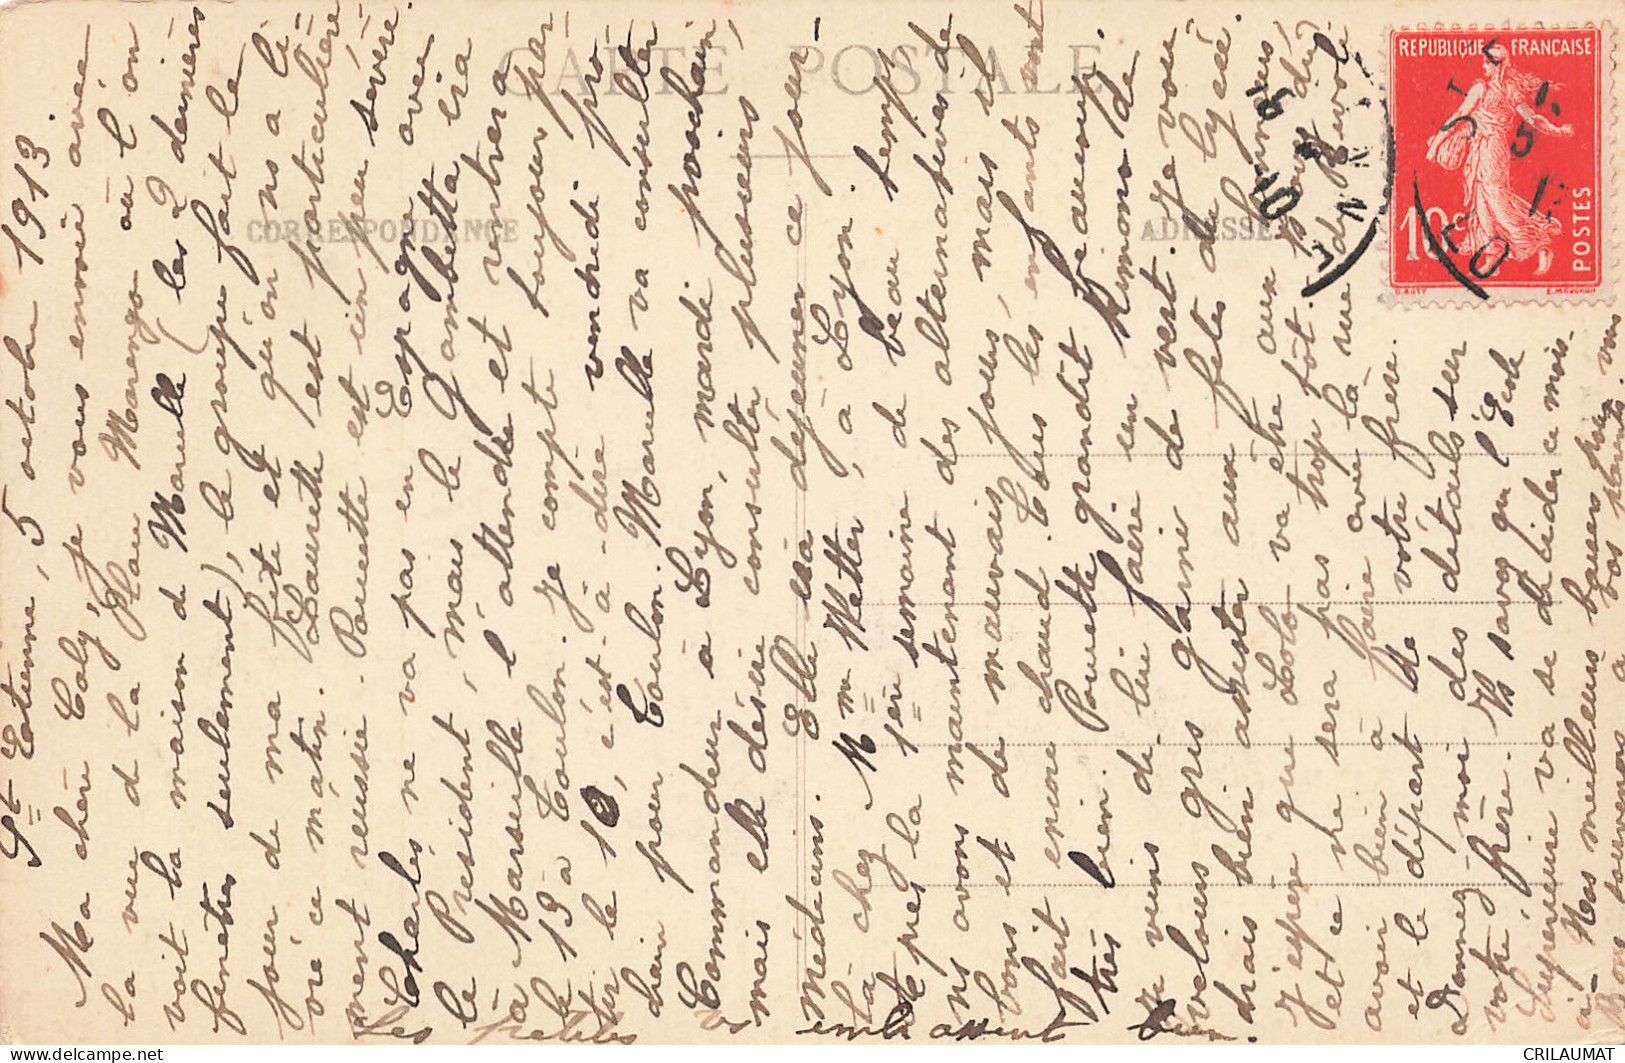 St Etienne, 5 octobre 1913.
Ma chère Caly, je vous envoie avec
la vue de la Place Marengo où l'on
voit la maison de Marcelle (les 2 dernières
fenêtres seulement), le groupe fait le
jour de ma fête et qu'on ns a li-
vré ce matin. Laurette est particulière
ment réussie. Poucette est un peu sévère.
Charles ne va pas en Espagne avec
le Président, mais le Gambetta ira
à Marseille l'attendre et rentrera
le 13 à Toulon. Je compte toujours par-
tir le 10, c'est-à-dire vendredi pro-
chain pour Toulon. Marcelle va consulter
Commandeur à Lyon, mardi prochain,
mais elle désire consulter plusieurs
médecins. Elle ira déjeuner ce jour-
là chez Mme Vetter, à Lyon.
Après la 1ère semaine de beau temps
ns avons maintenant des alternatives de
bons et de mauvais jours, mais il
fait encore chaud. Tous les enfants vont
très bien. Poucette grandit beaucoup.
Je viens de lui faire un kimono de
velours gris garni de vert. Je vou
drais bien assister aux fêtes du lycée.
J'espère que Loto va être aux honneurs,
et ce ne sera pas trop tôt. Vous
avoir bien à faire avec la rue de Rivoli
et le départ de votre frère.
Donnez-moi des détails sur
votre frère. Vs savez que l'Ecole
Supérieure va se décider ce mois-
ci - Mes meilleurs baisers pour vous
Bons souvenirs à vos parents.
Les petites vs embrassent bien
CARTE POSTALE
CORRESPONDANCE
ADRESSE
REPUBLIQUE FRANÇAISE
10c
POSTES
O. ROTY
E. MOUCHON
CRILAUMAT